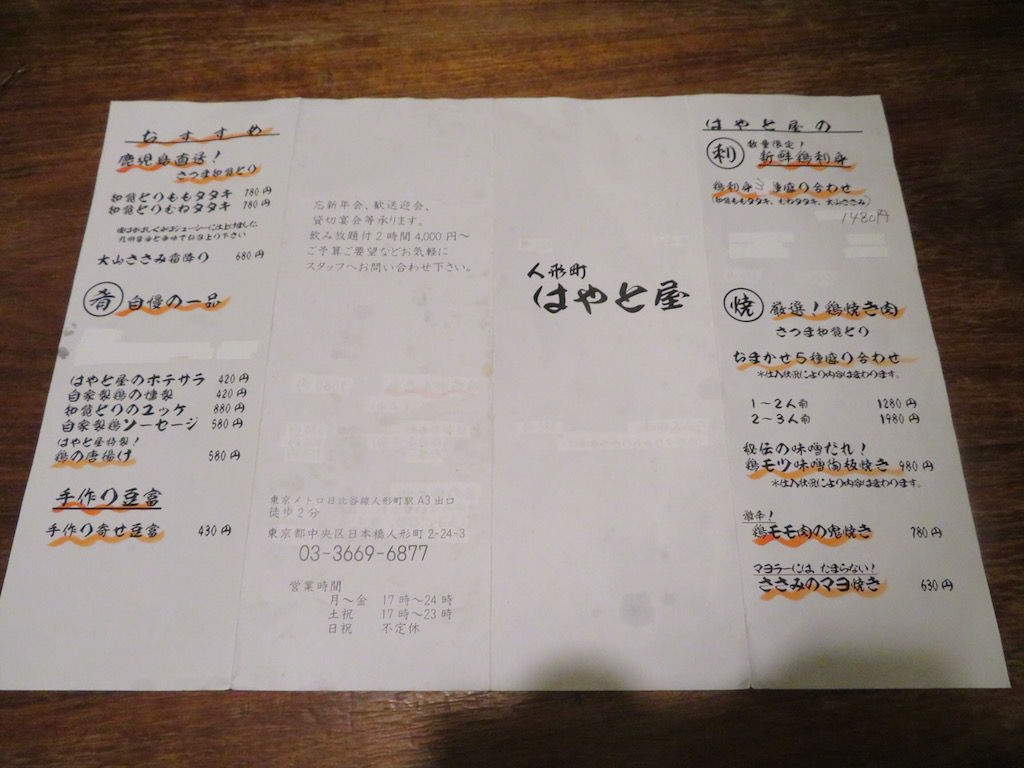 おすすめ
鹿児島直送！
さつま知覧どり
知覧どりももタタキ 780円
知覧どりむねタタキ 780円
九州醤油と薬味でお召上り下さい
大山ささみ霜降り 680円
肴 自慢の一品
はやと屋のポテサラ 420円
自家製鶏の燻製 420円
知覧どりのユッケ 880円
自家製鶏ソーセージ 580円
はやと屋特製！
鶏の唐揚げ 580円
手作り豆富
手作り寄せ豆富 430円
忘新年会、歓送迎会、
貸切宴会等承ります。
飲み放題付2時間4,000円～
ご予算ご要望などお気軽に
スタッフへお問い合わせ下さい。
東京メトロ日比谷線人形町駅A3出口
徒歩2分
東京都中央区日本橋人形町2-24-3
03-3669-6877
営業時間
月～金 17時～24時
土祝 17時～23時
日祝 不定休
人形町
はやと屋
はやと屋の
刺 数量限定！
新鮮鶏刺身
鶏刺身3種盛り合わせ
(知覧ももタタキ、むねタタキ、大山ささみ)
1480円
焼 厳選！鶏焼き肉
さつま知覧どり
おまかせ5種盛り合わせ
※仕入状況により内容は変わります。
1～2人前 1280円
2～3人前 1980円
秘伝の味噌だれ！
鶏モツ味噌陶板焼き 980円
※仕入状況により内容は変わります。
激辛！
鶏モモ肉の鬼焼き 780円
マヨラーには、たまらない！
ささみのマヨ焼き 630円